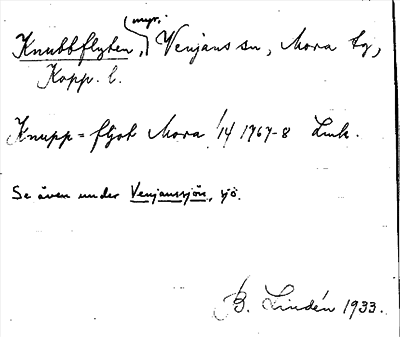 myr.
Knubbflyten, Venjans sn, Mora tg,
Kopp. l.
Knupp=flyot Mora 1/4 1767-8 Lmk.
Se även under Venjanssjön, sjö.
B. Lindén 1933.